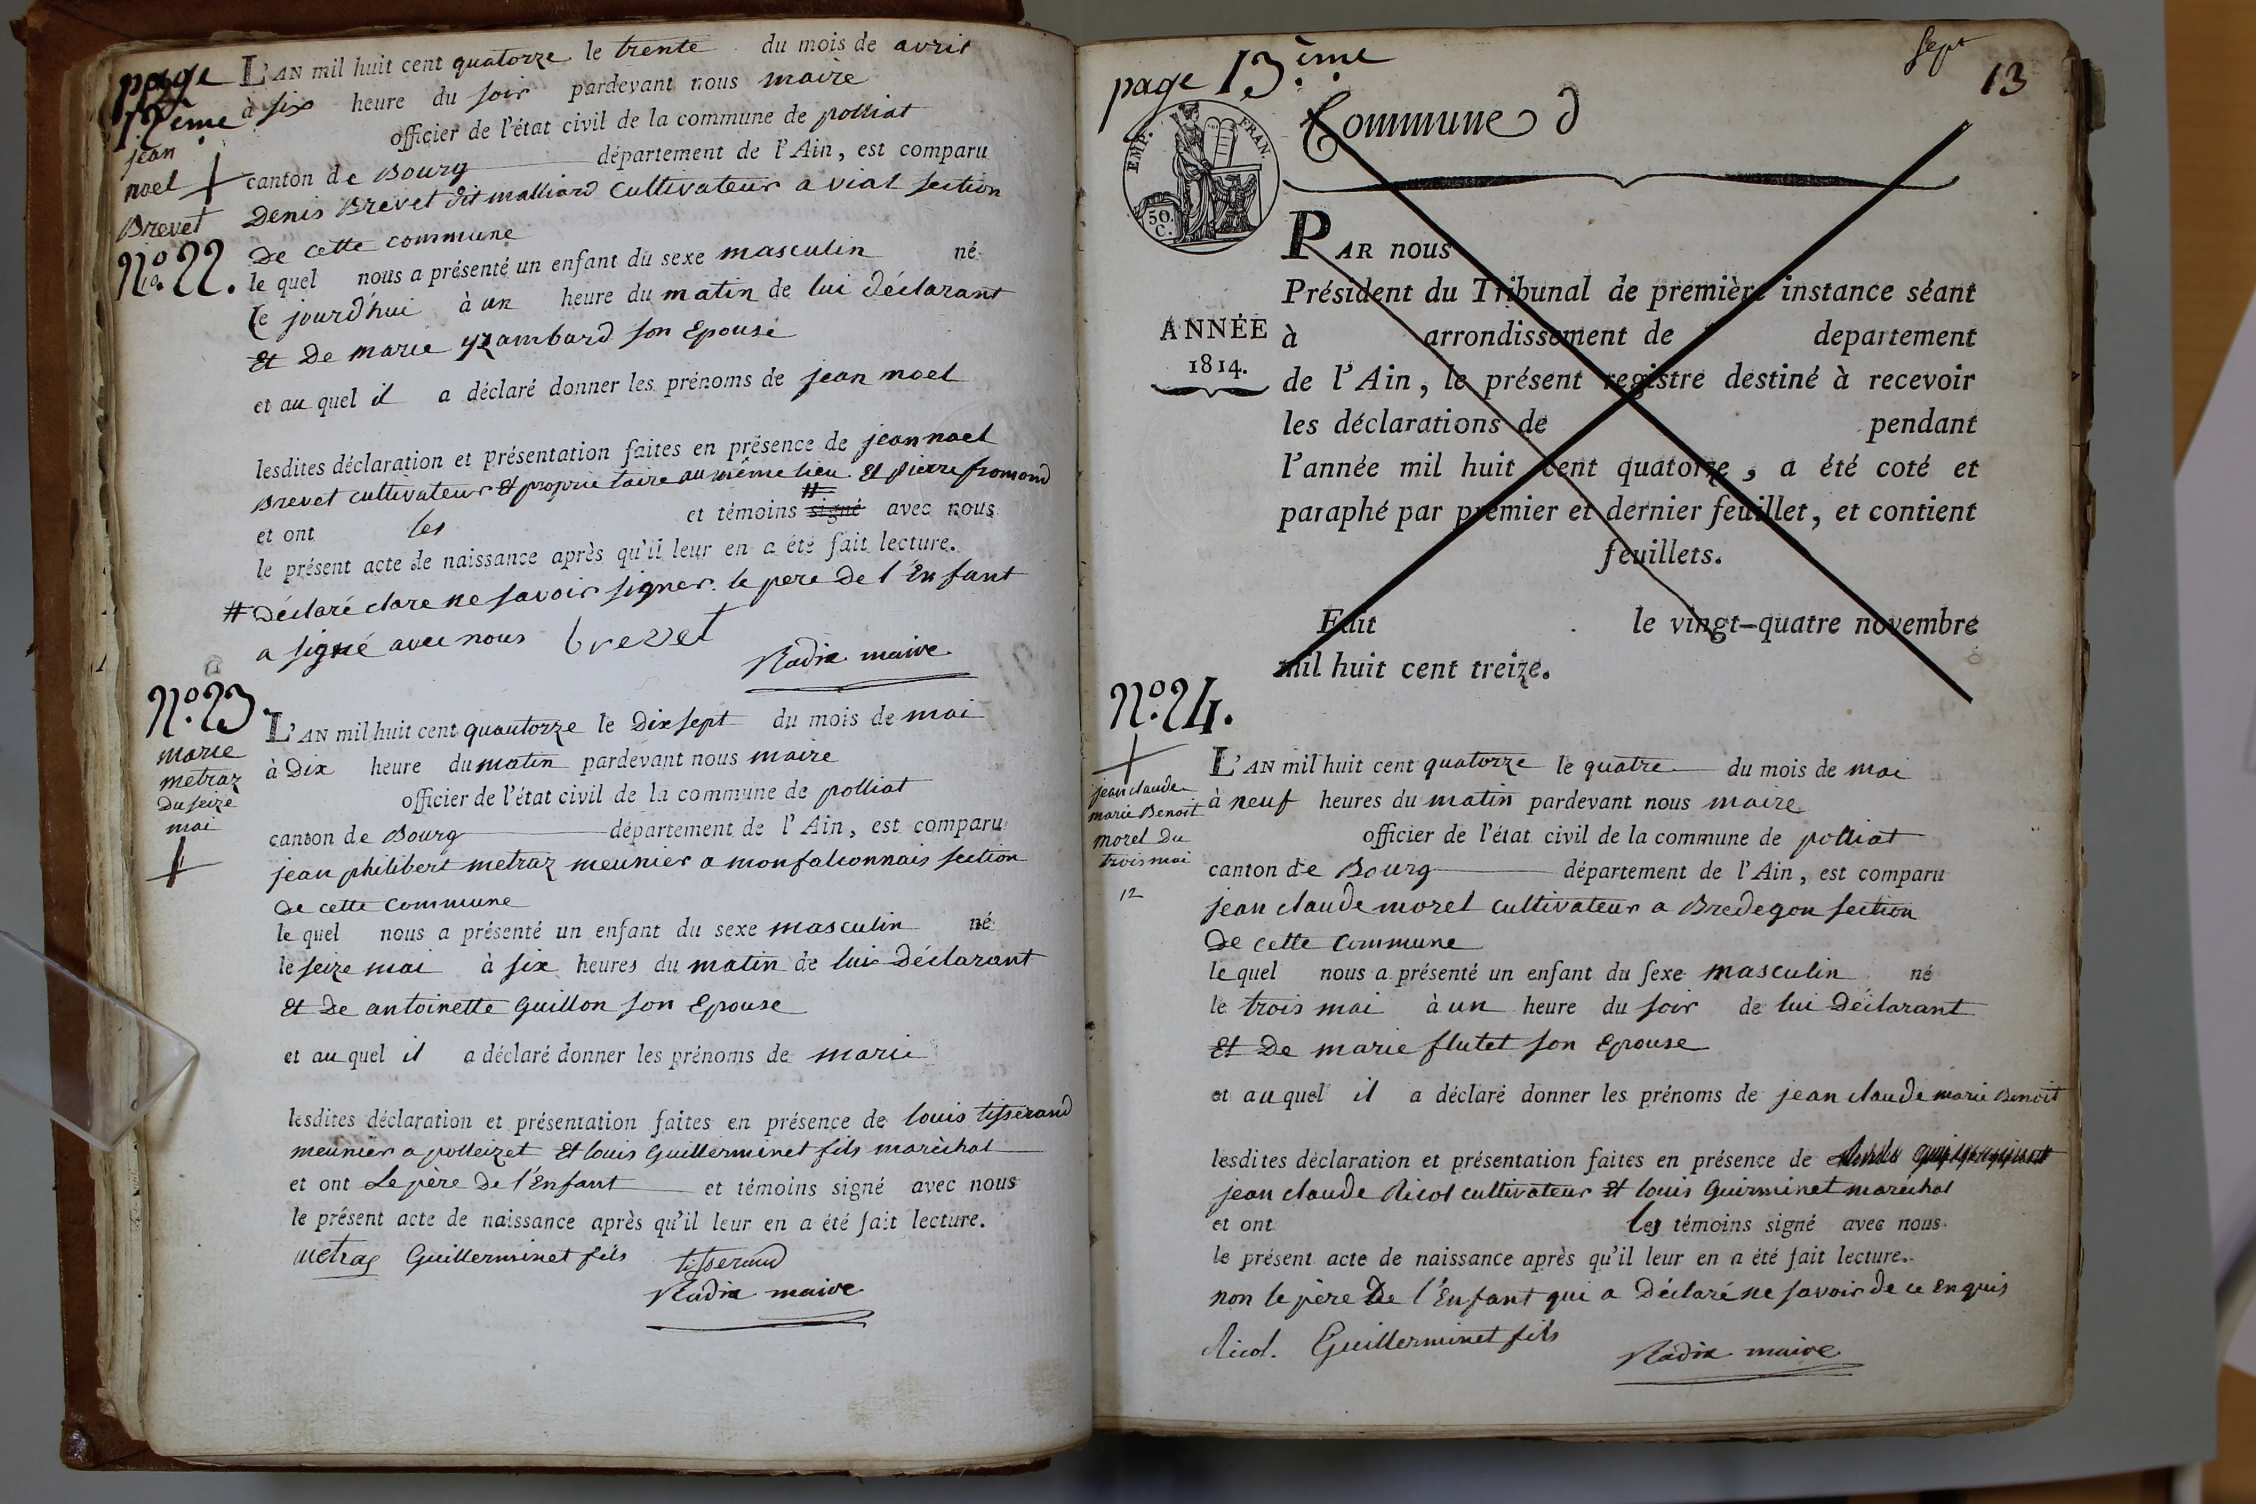 page
12ème
jean
noel
Brevet
N.o 22.
10.
L'AN mil huit cent quatorze le trente du mois de avril
à six heure du soir pardevant nous maire
officier de l'état civil de la commune de polliat
canton de Bourg département de l'Ain, est comparu
Denis Brevet dit malliard cultivateur a vial section
De cette commune
le quel nous a présenté un enfant du sexe masculin né
le jourd'hui à un heure du matin de lui déclarant
Et De marie yzambard son Epouse
et au quel il a déclaré donner les prénoms de jean noel
lesdites déclaration et présentation faites en présence de jean noel
Brevet cultivateur Et proprietaire au même lieu Et pierre fromond
et ont les et témoins signé # avec nous
le présent acte de naissance après qu'il leur en a été fait lecture.
# Déclaré clare ne savoir signer. le pere De l'Enfant
a signé avec nous brevet
Radix maire
N.o 23.
marie
metraz
du seize
mai
L'AN mil huit cent quautorze le Dix sept du mois de mai
à Dix heure du matin pardevant nous maire
officier de l'état civil de la commune de polliat
canton de Bourg département de l'Ain, est comparu
jean philibert metraz meunier a monfalconnais section
De cette commune
le quel nous a présenté un enfant du sexe masculin né
le seize mai à six heures du matin de lui Déclarant
Et De antoinette Guillon son Epouse
et au quel il a déclaré donner les prénoms de marie
lesdites déclaration et présentation faites en présence de louis tisserand
meunier a polleizet Et louis Guillerminet fils maréchal
et ont Le père De l'Enfant et témoins signé avec nous
le présent acte de naissance après qu'il leur en a été fait lecture.
metraz Guillerminet fils tisserand
Radix maire
page 13.ème
Sept
13
Commune d
EMP. FRAN.
50.
C.
ANNÉE
1814.
PAR nous
Président du Tribunal de première instance séant
à arrondissement de departement
de l'Ain, le présent registre destiné à recevoir
les déclarations de pendant
l'année mil huit cent quatorze, a été coté et
paraphé par premier et dernier feuillet, et contient
feuillets.
Fait le vingt-quatre novembre
mil huit cent treize.
N.o 24.
jean claude
marie Benoit
morel Du
trois mai
12
L'AN mil huit cent quatorze le quatre du mois de mai
à neuf heures du matin pardevant nous maire
officier de l'état civil de la commune de polliat
canton de Bourg département de l'Ain, est comparu
jean claude morel cultivateur a Bredegon section
De cette commune
le quel nous a présenté un enfant du sexe masculin né
le trois mai à un heure du soir de lui Déclarant
Et De marie flutet son Epouse
et au quel il a déclaré donner les prénoms de jean claude marie Benoit
lesdites déclaration et présentation faites en présence de
jean claude Ricol cultivateur Et louis Guirminet maréchal
et ont les témoins signé avec nous
le présent acte de naissance après qu'il leur en a été fait lecture.
non le père De l'Enfant qui a Déclaré ne savoir de ce enquis
Ricol. Guillerminet fils
Radix maire